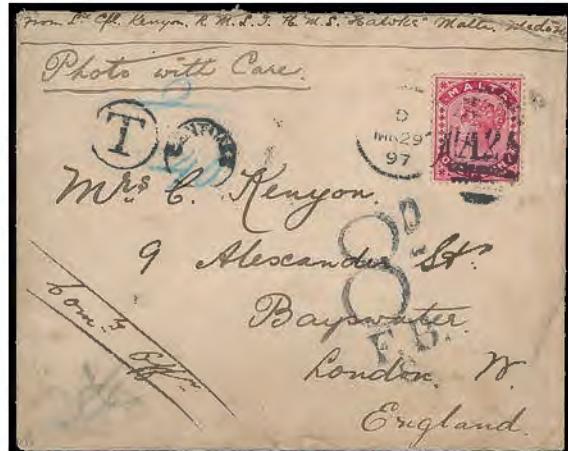 From L. Cpl. Kenyon. R. M. L. I. H. M. S. "Hawke" Malta.
Photo with Care.
T
MALTA
D
MR 29
97
A25
Mrs C. Kenyon.
9 Alexander St.
Bayswater.
London. W.
England.
8D
F.B.